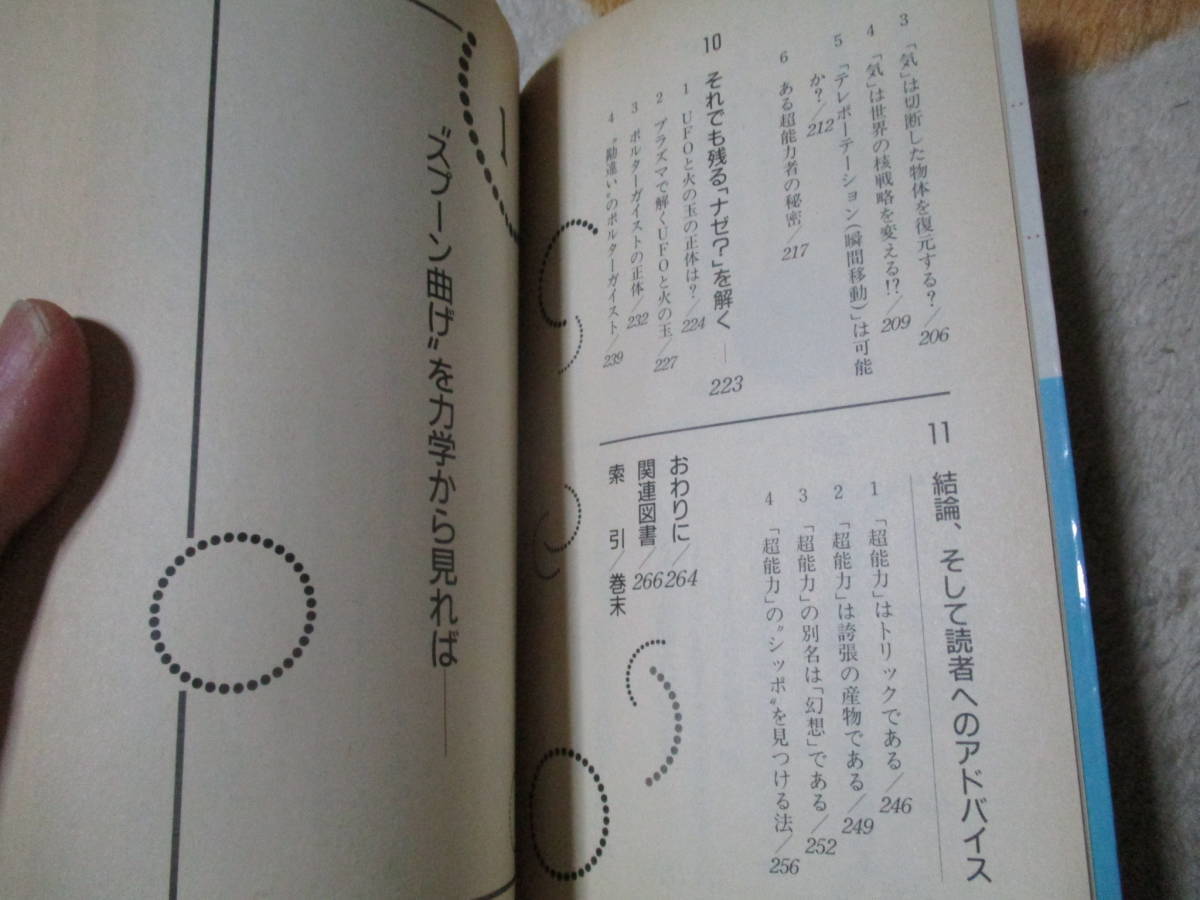 3 「気」は切断した物体を復元する?/206
4 「気」は世界の核戦略を変える!?/209
5 「テレポーテーション(瞬間移動)」は可能
か?/212
6 ある超能力者の秘密/217
10 それでも残る「ナゼ?」を解く — 223
1 UFOと火の玉の正体は?/224
2 プラズマで解くUFOと火の玉/227
3 ポルターガイストの正体/232
4 〝勘違い〟のポルターガイスト/239
11 結論、そして読者へのアドバイス
1 「超能力」はトリックである/246
2 「超能力」は誇張の産物である/249
3 「超能力」の別名は「幻想」である/252
4 「超能力」の〝シッポ〟を見つける法/256
おわりに/264
関連図書/266
索 引/巻末
1
〝スプーン曲げ〟を力学から見れば——